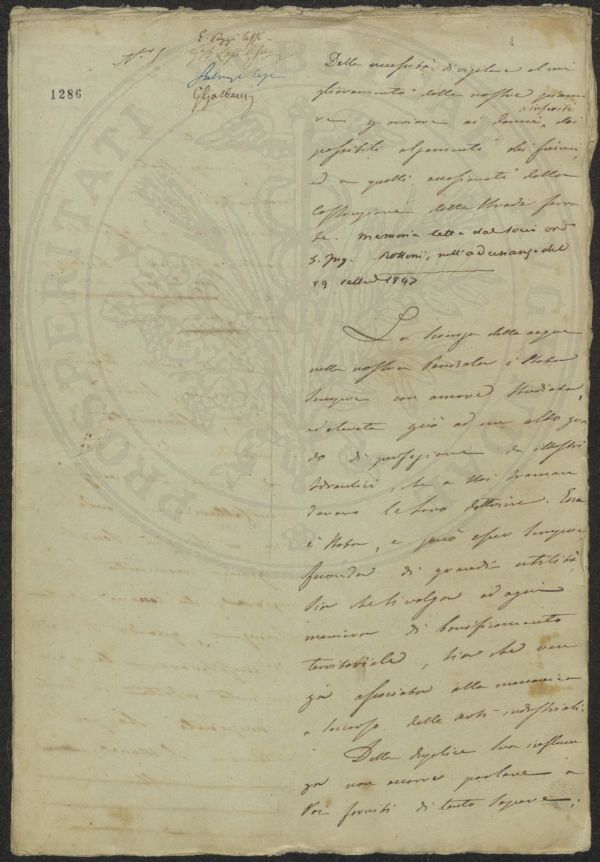 1286
Della necessità di vigilare al mi
glioramento delle nostre pianu
re, ed ovviare ai danni, dei
infausti
possibili alzamenti dei fiumi,
ed a quelli occasionati dalla
Costruzione delle Strade ferra
te. Memoria letta dal socio ord.
Ing. nell'adunanza del
19
La Scienza delle acque
nella nostra Penisola è stata
sempre con amore studiata,
ed elevata già ad un alto gra
do di perfezione da illustri
Idraulici, che a Noi traman
davano le loro dottrine. Essa
è stata, e può esser sempre
feconda di grandi utilità
sia che si volga ad ogni
maniera di bonificamento
territoriale, sia che ven
ga associata alla meccanica
a soccorso delle arti industriali.
Della duplice sua influen
za non occorre parlare a
Voi forniti di tanto sapere.
PROSPERITATI